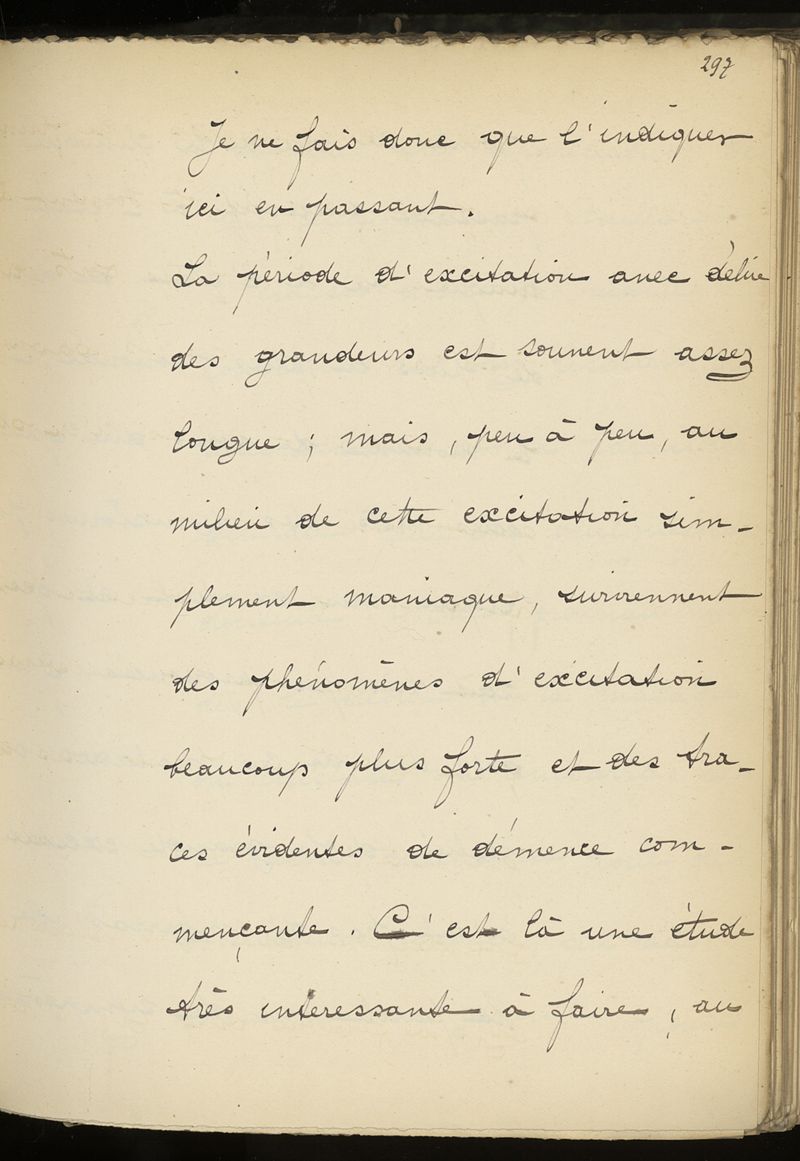 297
Je ne fais donc que l'indiquer
ici en passant.
La période d'excitation avec délire
des grandeurs est souvent assez
longue ; mais, peu à peu, au
milieu de cette excitation sim-
plement maniaque, surviennent
des phénomènes d'excitation
beaucoup plus forte et des tra-
ces évidentes de démence com-
mençante. C'est là une étude
très intéressante à faire, au